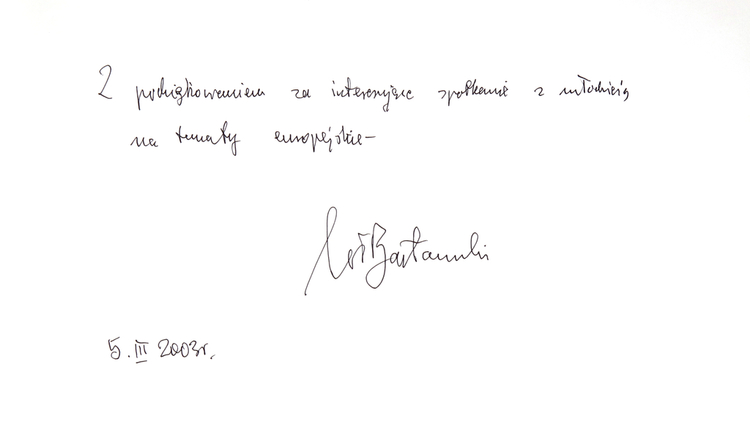 Z podziękowaniem za interesujące spotkanie z młodzieżą
na tematy europejskie –
5. III 2003r.